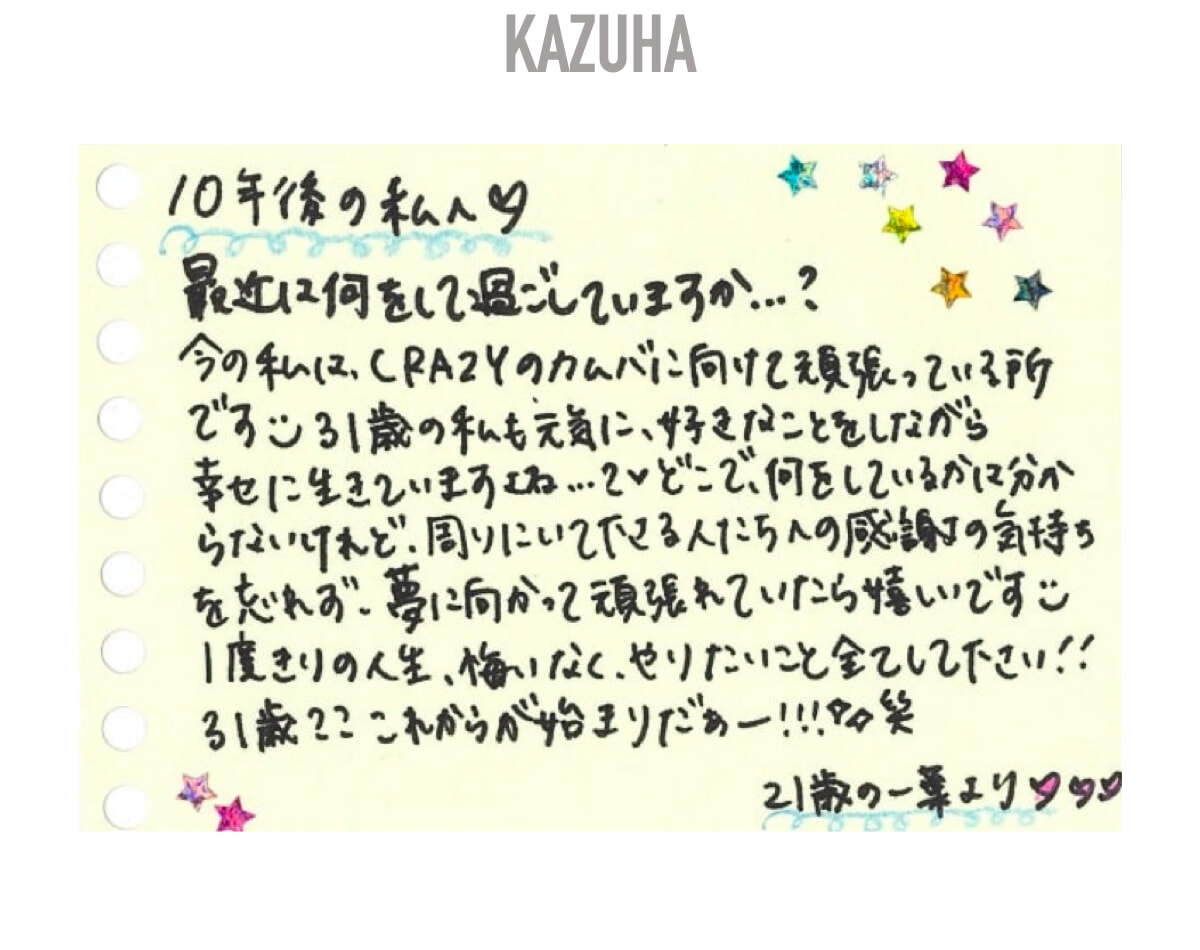 KAZUHA
10年後の私へ♡
最近は何をして過ごしていますか...?
今の私は、CRAZYのカムバに向けて頑張っている所
です☺31歳の私も元気に、好きなことをしながら
幸せに生きていますよね...?♡どこで、何をしているかは分か
らないけれど、周りにいて下さる人たちへの感謝の気持ち
を忘れず、夢に向かって頑張れていたら嬉しいです☺
1度きりの人生、悔いなく、やりたいこと全てして下さい!!
31歳??これからが始まりだぁー!!!✨笑
21歳の一葉より♡♡♡